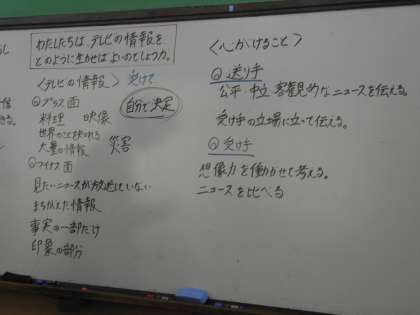 わたしたちは、テレビの情報を
どのように生かせばよいのでしょうか。
〈テレビの情報〉受けて
プラス面
自分で決定
料理 映像
世界のことを知れる
大量の情報 災害
マイナス面
見たいニュースが放送していない
まちがえた情報
事実の一部だけ
印象の部分
〈心がけること〉
送り手
公平 中立 客観的なニュースを伝える。
受け手の立場に立って伝える。
受け手
想像力を働かせて考える。
ニュースを比べる